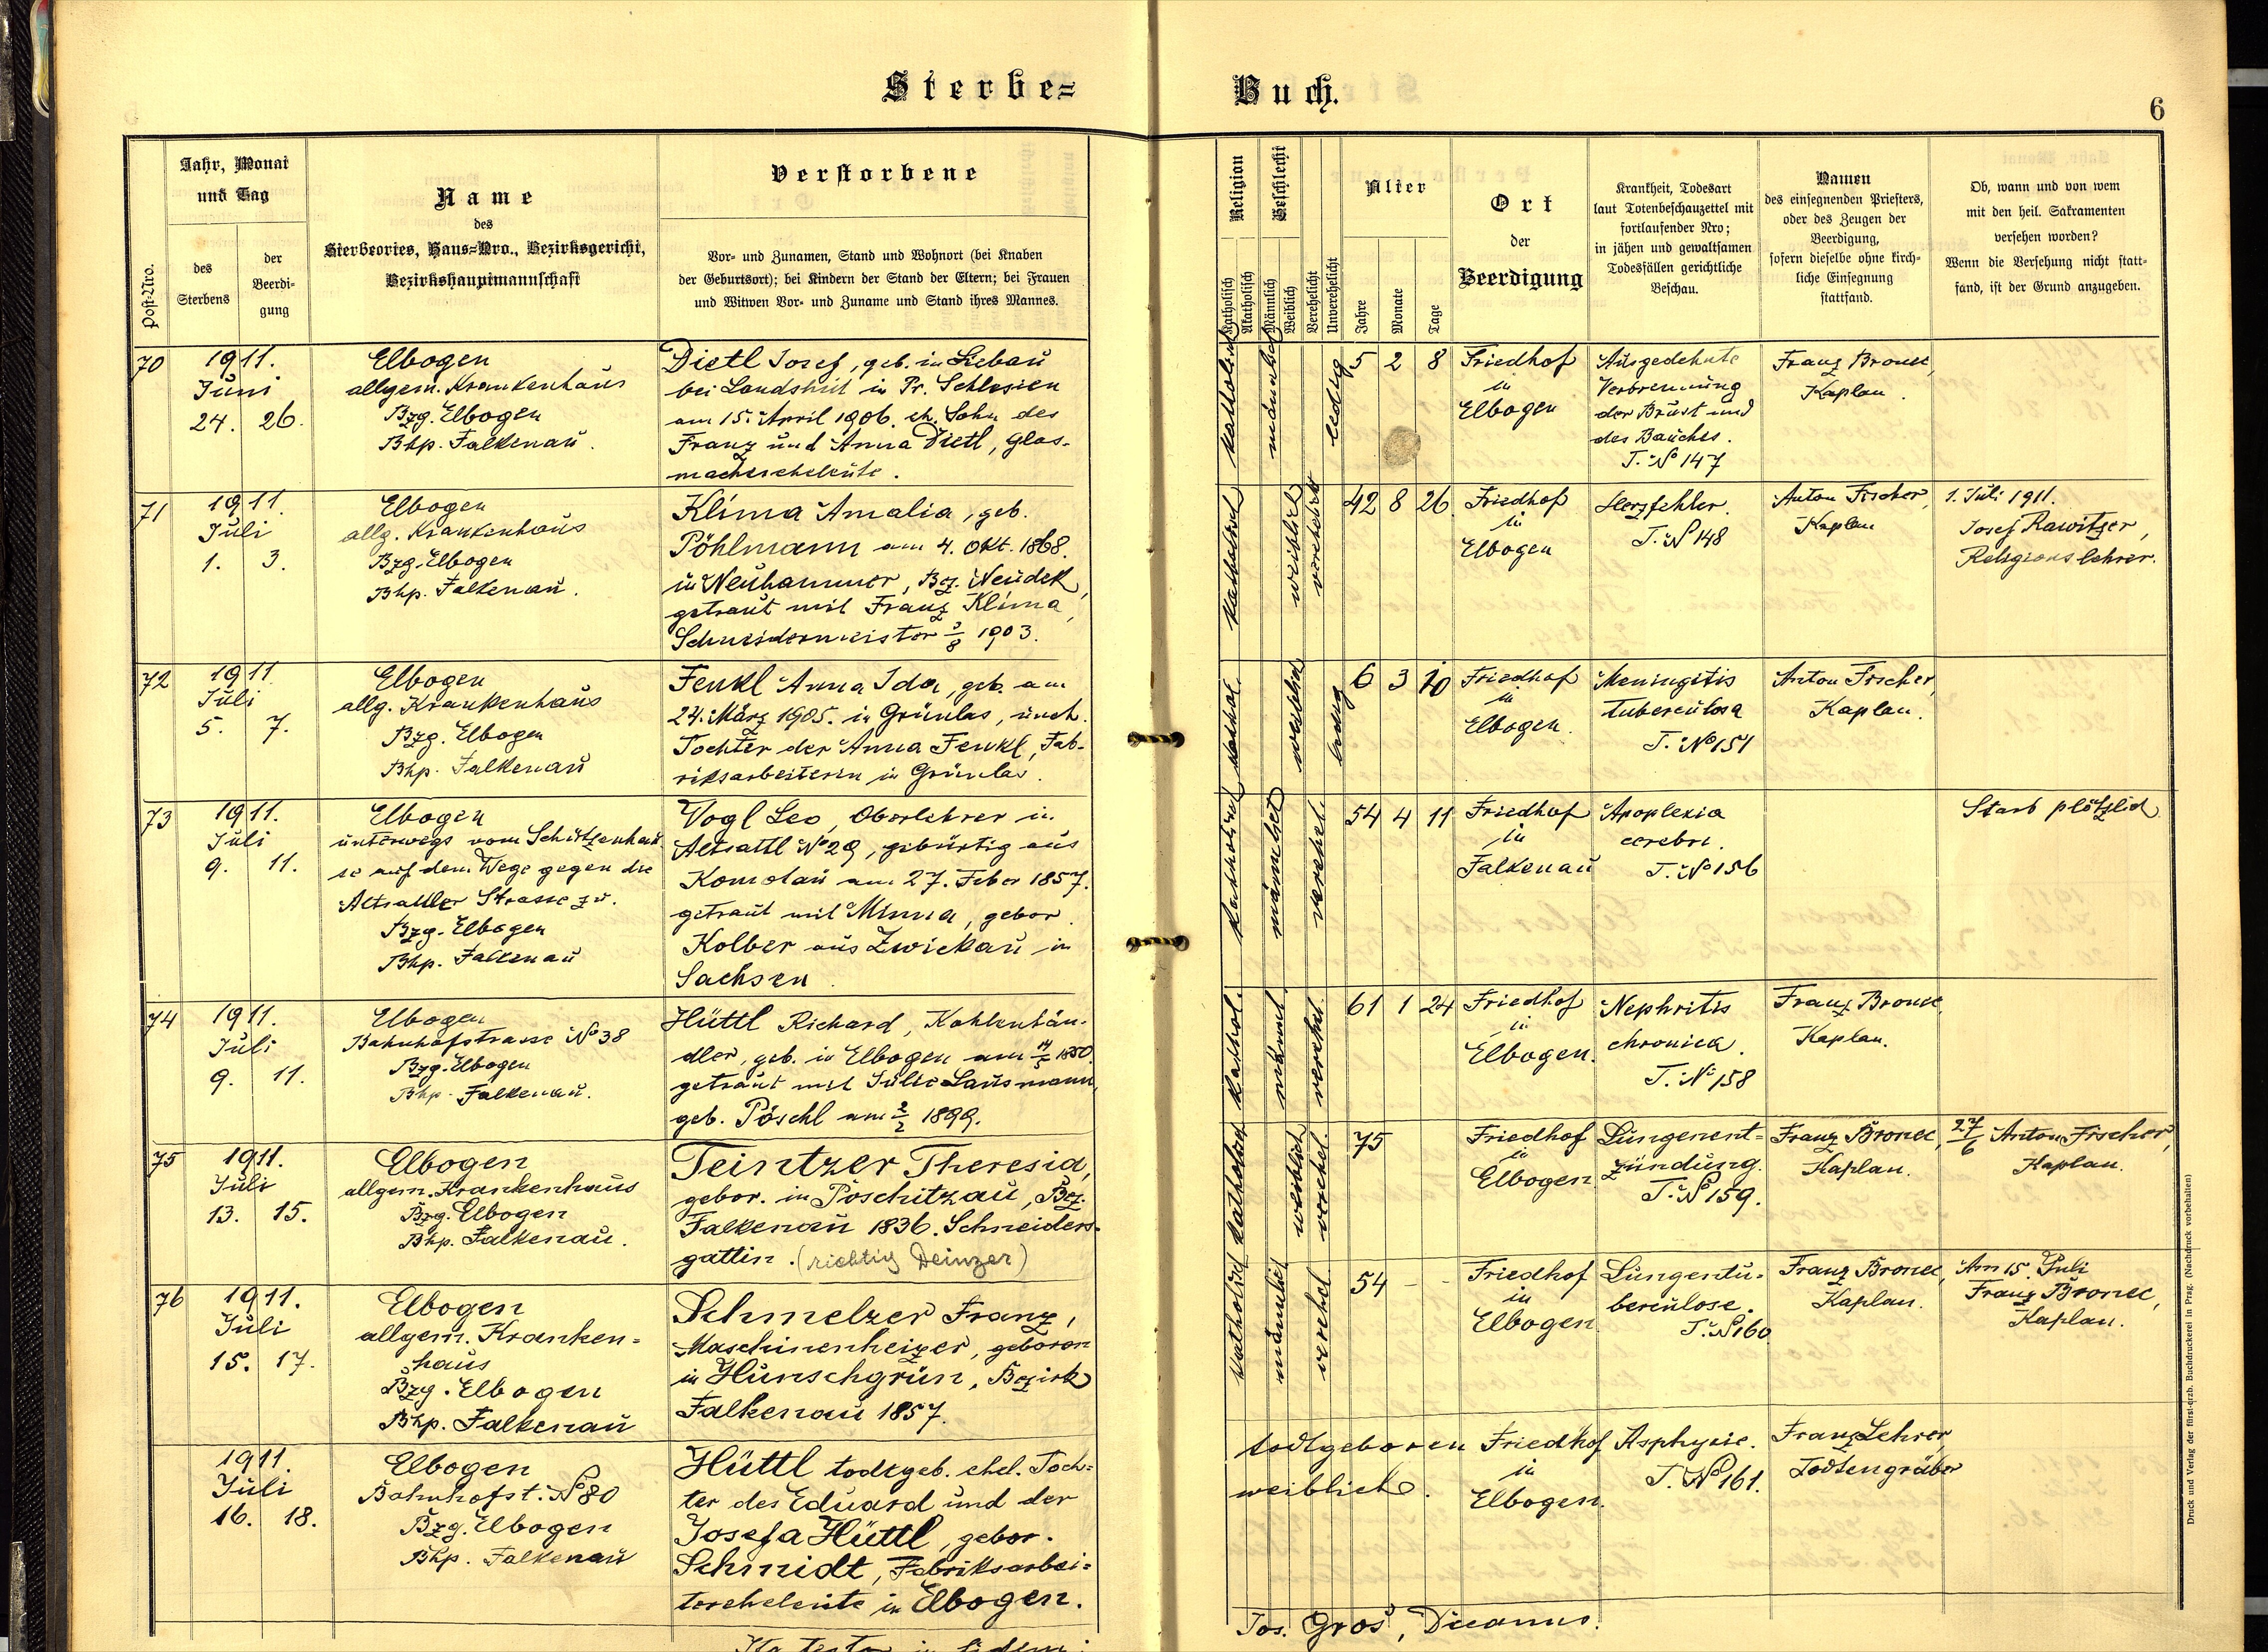 Sterbe=
Buch.
6
Post-Nro.
Jahr, Monat
und Tag
des
Sterbens
der
Beerdi-
gung
Name
des
Sterbeortes, Haus=Nro., Bezirksgericht,
Bezirkshauptmannschaft
Verstorbene
Vor- und Zunamen, Stand und Wohnort (bei Knaben
der Geburtsort); bei Kindern der Stand der Eltern; bei Frauen
und Witwen Vor- und Zuname und Stand ihres Mannes.
Religion
Katholisch
Akatholisch
Geschlecht
Männlich
Weiblich
Verehelicht
Unverehelicht
Alter
Jahre
Monate
Tage
Ort
der
Beerdigung
Krankheit, Todesart
laut Totenbeschauzettel mit
fortlaufender Nro;
in jähen und gewaltsamen
Todesfällen gerichtliche
Beschau.
Namen
des einsegnenden Priesters,
oder des Zeugen der
Beerdigung,
sofern dieselbe ohne kirch-
liche Einsegnung
stattfand.
Ob, wann und von wem
mit den heil. Sakramenten
versehen worden?
Wenn die Versehung nicht statt-
fand, ist der Grund anzugeben.
70
1911.
Juni
24. 26.
Elbogen
allgem. Krankenhaus
Bzg. Elbogen
Bhp. Falkenau.
Dietl Josef, geb. in Liebau
bei Landshut in Pr. Schlesien
am 15. April 1906. eh. Sohn des
Franz und Anna Dietl, Glas-
machereheleute.
katholisch
männlich
ledig
5 2 8
Friedhof
in
Elbogen
Ausgedehnte
Verbrennung
der Brust und
des Bauches.
T. No 147
Franz Bronec,
Kaplan.
71
1911.
Juli
1. 3.
Elbogen
allg. Krankenhaus
Bzg. Elbogen
Bhp. Falkenau.
Klima Amalia, geb.
Pöhlmann am 4. Okt. 1868.
in Neuhammer, Bez. Neudek,
getraut mit Franz Klima,
Schneidermeister 3/8 1903.
katholisch
weiblich
verehelicht
42 8 26
Friedhof
in
Elbogen
Herzfehler.
T. No 148
Anton Fischer,
Kaplan
1. Juli 1911.
Josef Rawitzer,
Religionslehrer.
72
1911
Juli
5. 7.
Elbogen
allg. Krankenhaus
Bzg. Elbogen
Bhp. Falkenau
Fenkl Anna Ida, geb. am
24. März 1905. in Grünlas, uneh.
Tochter der Anna Fenkl, Fab-
riksarbeiterin in Grünlas.
kathol.
weiblich
ledig
6 3 10
Friedhof
in
Elbogen.
Meningitis
tuberculosa
T. No 151
Anton Fischer,
Kaplan.
73
1911.
Juli
9. 11.
Elbogen
unterwegs vom Schützenhau
se auf dem Wege gegen die
Altsattler Strasse zu.
Bzg. Elbogen
Bhp. Falkenau
Vogl Leo, Oberlehrer in
Altsattl No 29, gebürtig aus
Komotau am 27. Feber 1857.
getraut mit Minna, gebor.
Kolber aus Zwickau in
Sachsen.
katholisch
männlich
verehel.
54 4 11
Friedhof
in
Falkenau
Apoplexia
cerebri.
T. No 156
Starb plötzlich
74
1911.
Juli
9. 11.
Elbogen
Bahnhofstrasse No 38
Bzg. Elbogen
Bhp. Falkenau.
Hüttl Richard, Kohlenhän-
dler, geb. in Elbogen am 14/5 1850.
getraut mit Julie Lausmann,
geb. Pöschl am 2/2 1899.
kathol.
männl.
verehel.
61 1 24
Friedhof
in
Elbogen.
Nephritis
chronica.
T. No 158
Franz Bronec,
Kaplan.
75
1911.
Juli
13. 15.
Elbogen
allgem. Krankenhaus
Bzg. Elbogen
Bhp. Falkenau.
Teintzer Theresia,
gebor. in Poschitzau, Bez.
Falkenau 1836. Schneiders-
gattin. (richtig Deinzer)
katholisch
weiblich
verehel.
75
Friedhof
in
Elbogen.
Lungenent=
zündung.
T. No 159.
Franz Bronec,
Kaplan.
27/6 Anton Fischer,
Kaplan.
76
1911.
Juli
15. 17.
Elbogen
allgem. Kranken=
haus
Bzg. Elbogen
Bhp. Falkenau
Schmelzer Franz,
Maschinenheizer, geboren
in Hunschgrün, Bezirk
Falkenau 1857.
katholisch
männlich
verehel.
54 - -
Friedhof
in
Elbogen.
Lungentu=
berculose.
T. No 160
Franz Bronec,
Kaplan.
Am 15. Juli
Franz Bronec,
Kaplan.
1911.
Juli
16. 18.
Elbogen
Bahnhofst. No 80
Bzg. Elbogen
Bhp. Falkenau
Hüttl todtgeb. ehel. Toch=
ter des Eduard und der
Josefa Hüttl, gebor.
Schmidt, Fabriksarbei=
tereheleute in Elbogen.
todtgeboren
weiblich.
Friedhof
in
Elbogen.
Asphyxie.
T. No 161.
Franz Lehrer,
Todtengräber
Ita testor in fidem:
Jos. Gros, Decanus.
Druck und Verlag der fürst-erzb. Buchdruckerei in Prag. (Nachdruck vorbehalten)